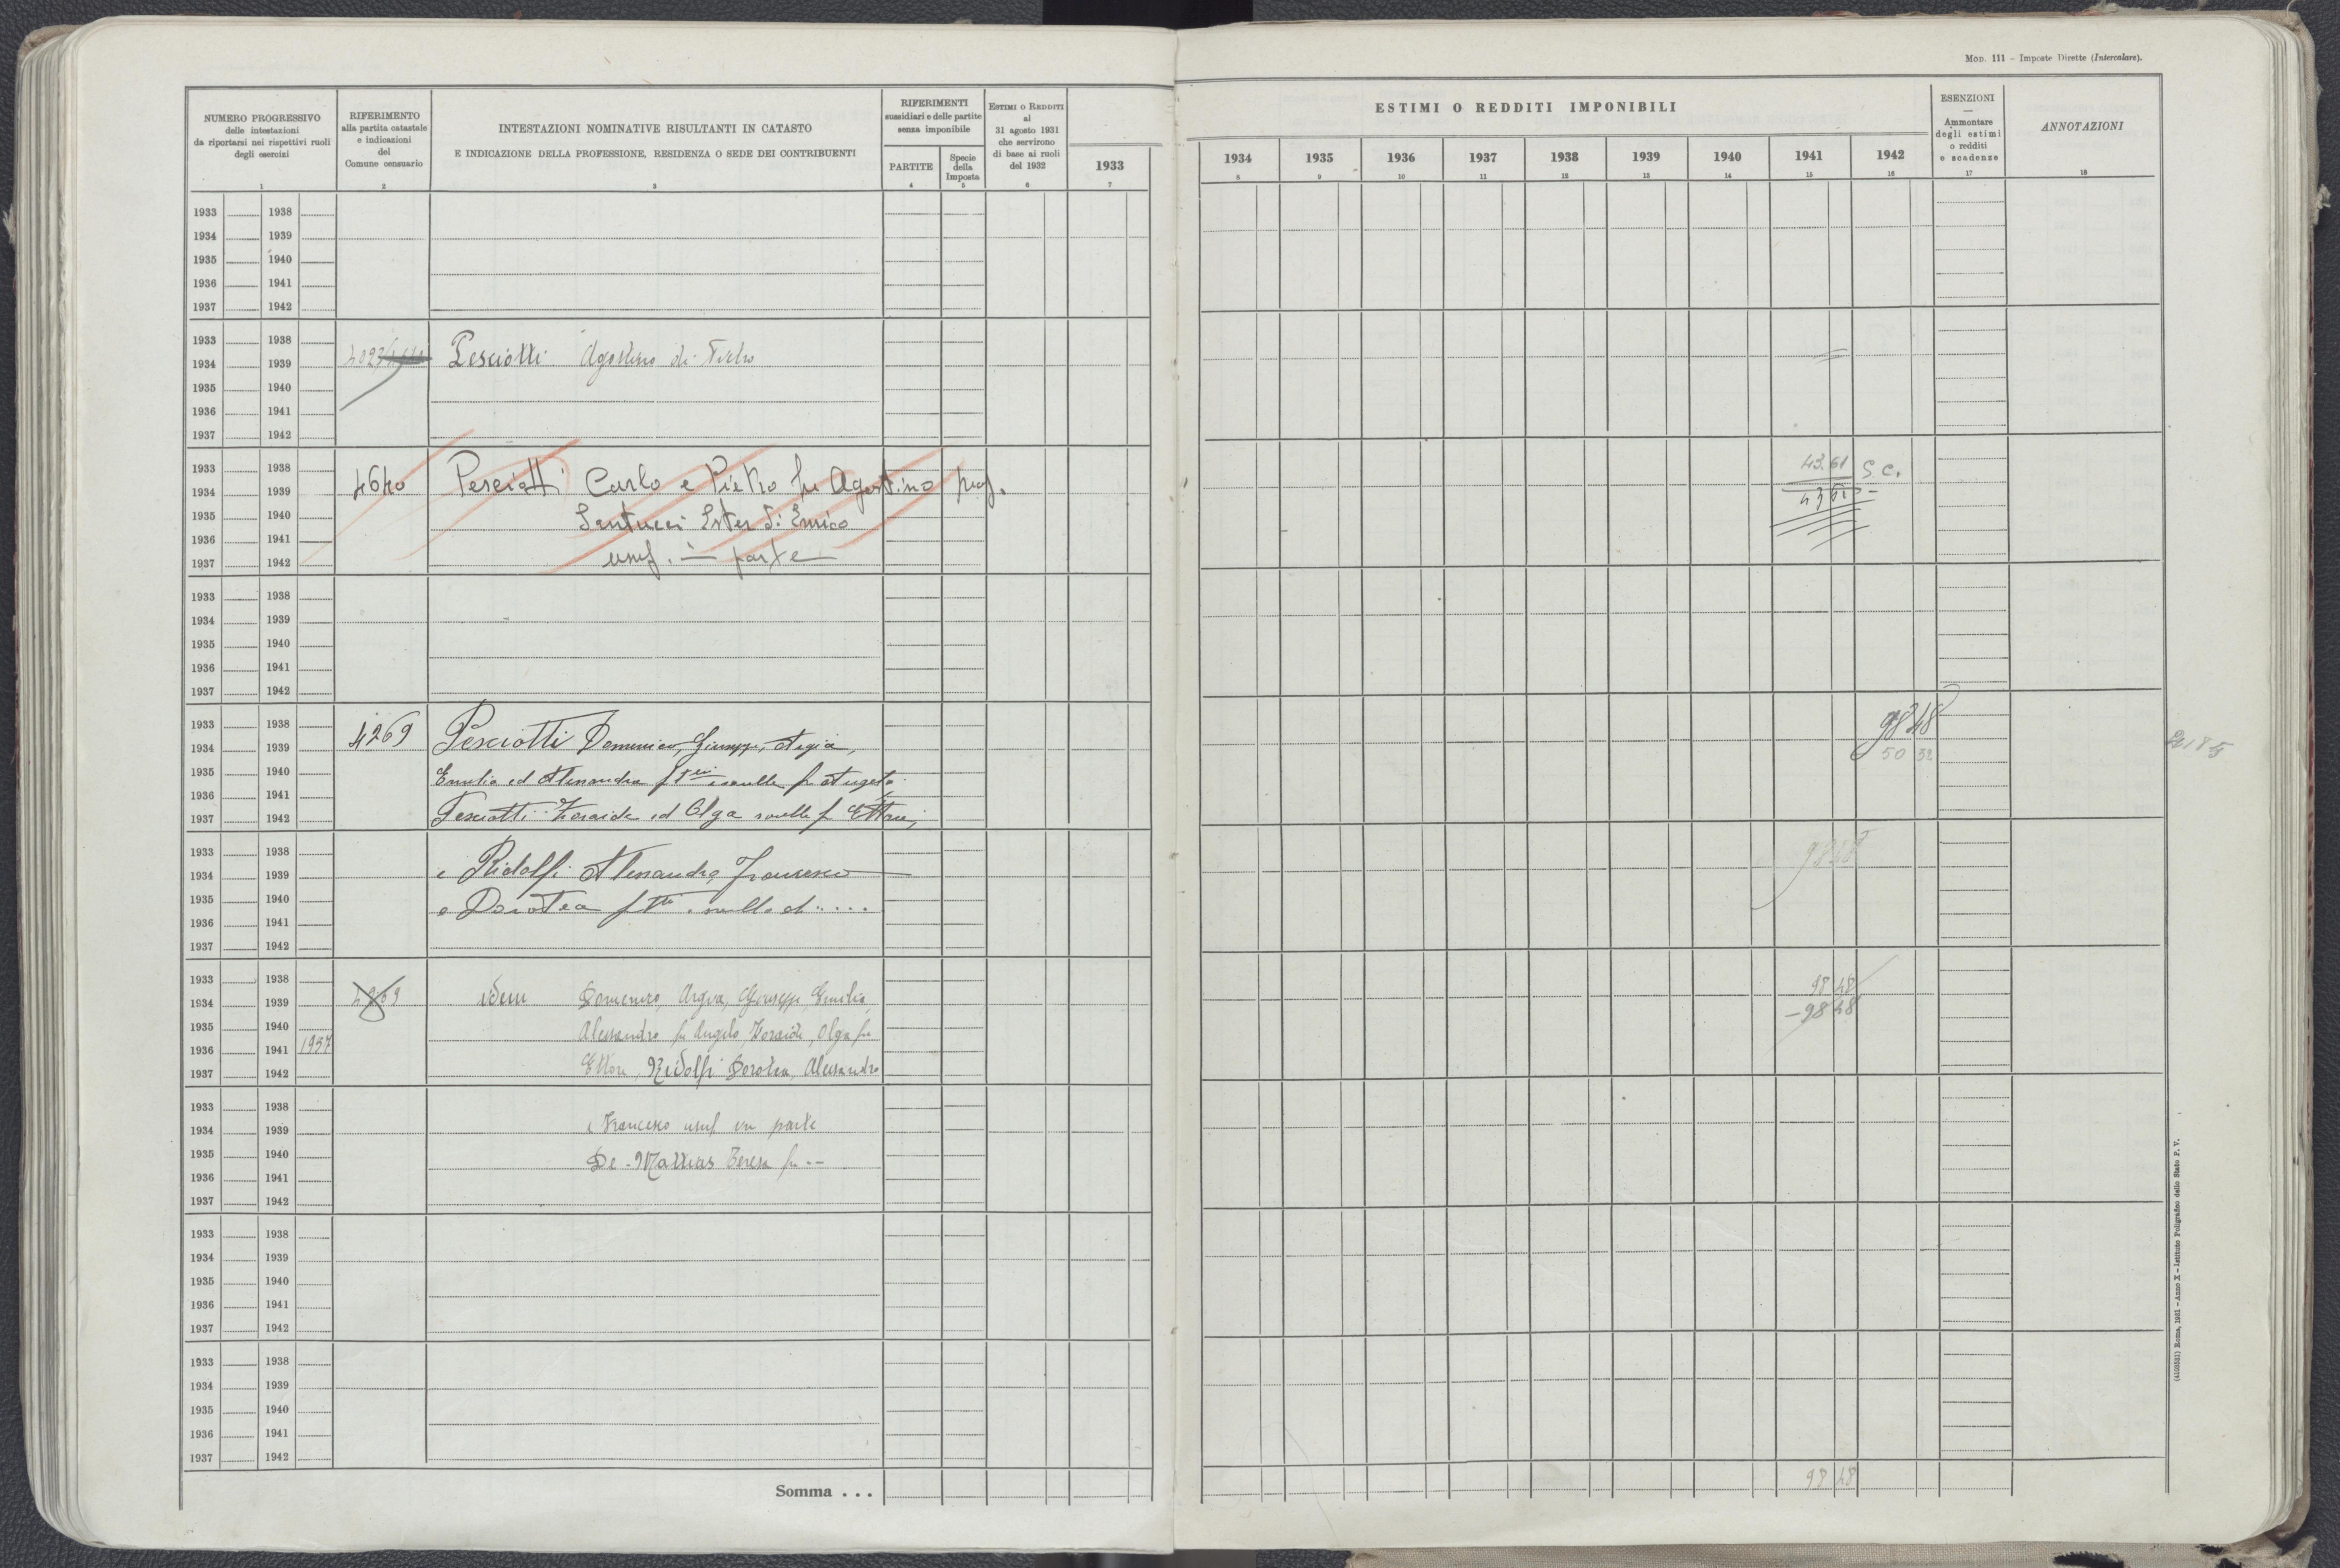 Mod. 111 – Imposte Dirette (Intercalare).
NUMERO PROGRESSIVO
delle intestazioni
da riportarsi nei rispettivi ruoli
degli esercizi
1
RIFERIMENTO
alla partita catastale
e indicazioni
del
Comune censuario
2
INTESTAZIONI NOMINATIVE RISULTANTI IN CATASTO
E INDICAZIONE DELLA PROFESSIONE, RESIDENZA O SEDE DEI CONTRIBUENTI
3
RIFERIMENTI
sussidiari e delle partite
senza imponibile
PARTITE
4
Specie
della
Imposta
5
Estimi o Redditi
al
31 agosto 1931
che servirono
di base ai ruoli
del 1932
6
1933
7
ESTIMI O REDDITI IMPONIBILI
1934 1935 1936 1937 1938 1939 1940 1941 1942
8 9 10 11 12 13 14 15 16
ESENZIONI
—
Ammontare
degli estimi
o redditi
e scadenze
17
ANNOTAZIONI
18
1933 1938
1934 1939
1935 1940
1936 1941
1937 1942
1933 1938
1934 1939 4023 Pesciotti Agostino di Pietro
1935 1940
1936 1941
1937 1942
1933 1938 43.61 S.C.
1934 1939 4640 Pesciotti Carlo e Pietro fu Agostino prop. 43 61 –
1935 1940 Santucci Ester di Enrico
1936 1941
1937 1942 usuf. in parte
1933 1938
1934 1939
1935 1940
1936 1941
1937 1942
1933 1938 98 48
1934 1939 4269 Pesciotti Domenico, Giuseppe, Argia, 50 32
1935 1940 Emilia ed Alessandra f.lli e sorelle fu Angelo
1936 1941
1937 1942 Pesciotti Zoraide ed Olga sorelle fu Ettore,
1933 1938 98 48
1934 1939 e Ridolfi Alessandro, Francesco
1935 1940 e Dorotea f.lli e sorella di ....
1936 1941
1937 1942
1933 1938 98 48
1934 1939 4269 idem Domenico, Argia, Giuseppe, Emilia, – 98 48
1935 1940 Alessandro fu Angelo, Zoraide, Olga fu
1936 1941 1957
1937 1942 Ettore, Ridolfi Dorotea, Alessandro
1933 1938
1934 1939 e Francesco usuf in parte
1935 1940 De-Mattias Teresa fu --
1936 1941
1937 1942
1933 1938
1934 1939
1935 1940
1936 1941
1937 1942
1933 1938
1934 1939
1935 1940
1936 1941
1937 1942
Somma . . . 98 48
(4103531) Roma, 1931 – Anno X – Istituto Poligrafico dello Stato P. V.